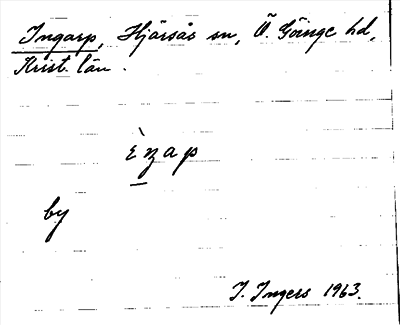 Ingarp, Hjärsås sn, Ö. Göinge hd,
Krist. län.
ὲŋap
by
I. Ingers 1963.